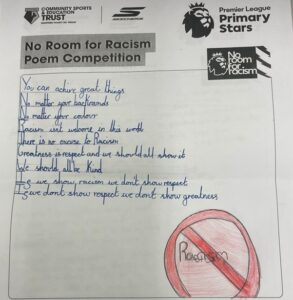 COMMUNITY SPORTS
& EDUCATION
TRUST
SKECHERS
Premier League
Primary
Stars
No Room for Racism
Poem Competition
No
room
for
racism
You can achive great things
No matter your backrounds
No matter your colour
Racism isnt welcome in this world
There is no excuse to Racism
Greatness is respect and we should all show it
We should all be Kind
If we show racism we don't show respect
If we don't show respect we don't show greatness
Racism